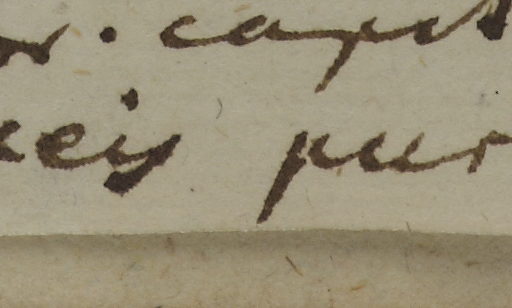 r. capit
eis pur